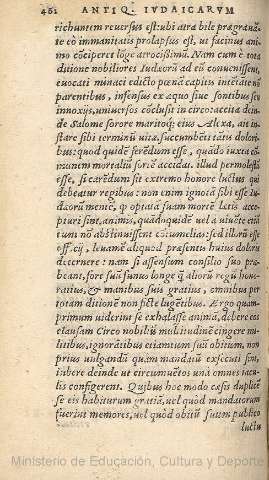 462 ANTIQ. IVDAICARVM
richuntem reuersus est: ubi atra bile prægrauã
te eò immanitatis prolapsus est, ut facinus ani-
mo cõciperet lõgè atrocissimũ. Nam cum è tota
ditione nobiliores Iudæorũ ad eũ conuenissent,
euocati minaci edicto pœnã capitis intẽtãte nõ
parentibus, infensus ex æquo siue sontibus seu
innoxijs, uniuersos cõclusit in circo: accita dein-
de Salome sorore maritoq; eius Alexa, an in-
stare sibi terminũ uitæ, succumbẽti tãtis dolori
bus: quod quidẽ ferẽdum esse, quádo iuxta cõ-
munem mortaliũ sortẽ accidat. illud permolestũ
esse, si carẽdum sit extremo honore luctus qui
debeatur regibus: non enim ignorã sibi esse Iu-
dæorũ mentẽ, q optata suam mortẽ lætis acce-
pturi sint animis, quádoquidẽ uel à uiuẽte etiã
tum nõ abstinuissent cõtumelias: sed illorũ esse
off.cij, leuamẽ aliquod præsentis huius doloris
decernere: nam si assensum consilio suo præ-
beant, fore sui funus longe q̃ aliorũ regũ hono-
ratius, & manibus suis gratius, omnibus per
totam ditionẽ non ficte lugẽtibus. Ergo quam-
primum uiderint se exhalasse animã, debere eos
clausam Circo nobiliũ multitudinẽ cingere mi-
litibus, ignorãtibus etiamtum suũ obitum, non
prius uulgandũ quam mandatũ exsecuti sint,
iubere deinde ut circumuẽtos unà omnes iacu-
lis configerent. Quibus hoc modo cæsis duplicẽ
se eis habiturũ gratiã, uel quòd mandatorum
fuerint memores, uel quòd obitũ suum publico
luctu
Ministerio de Educación, Cultura y Deporte